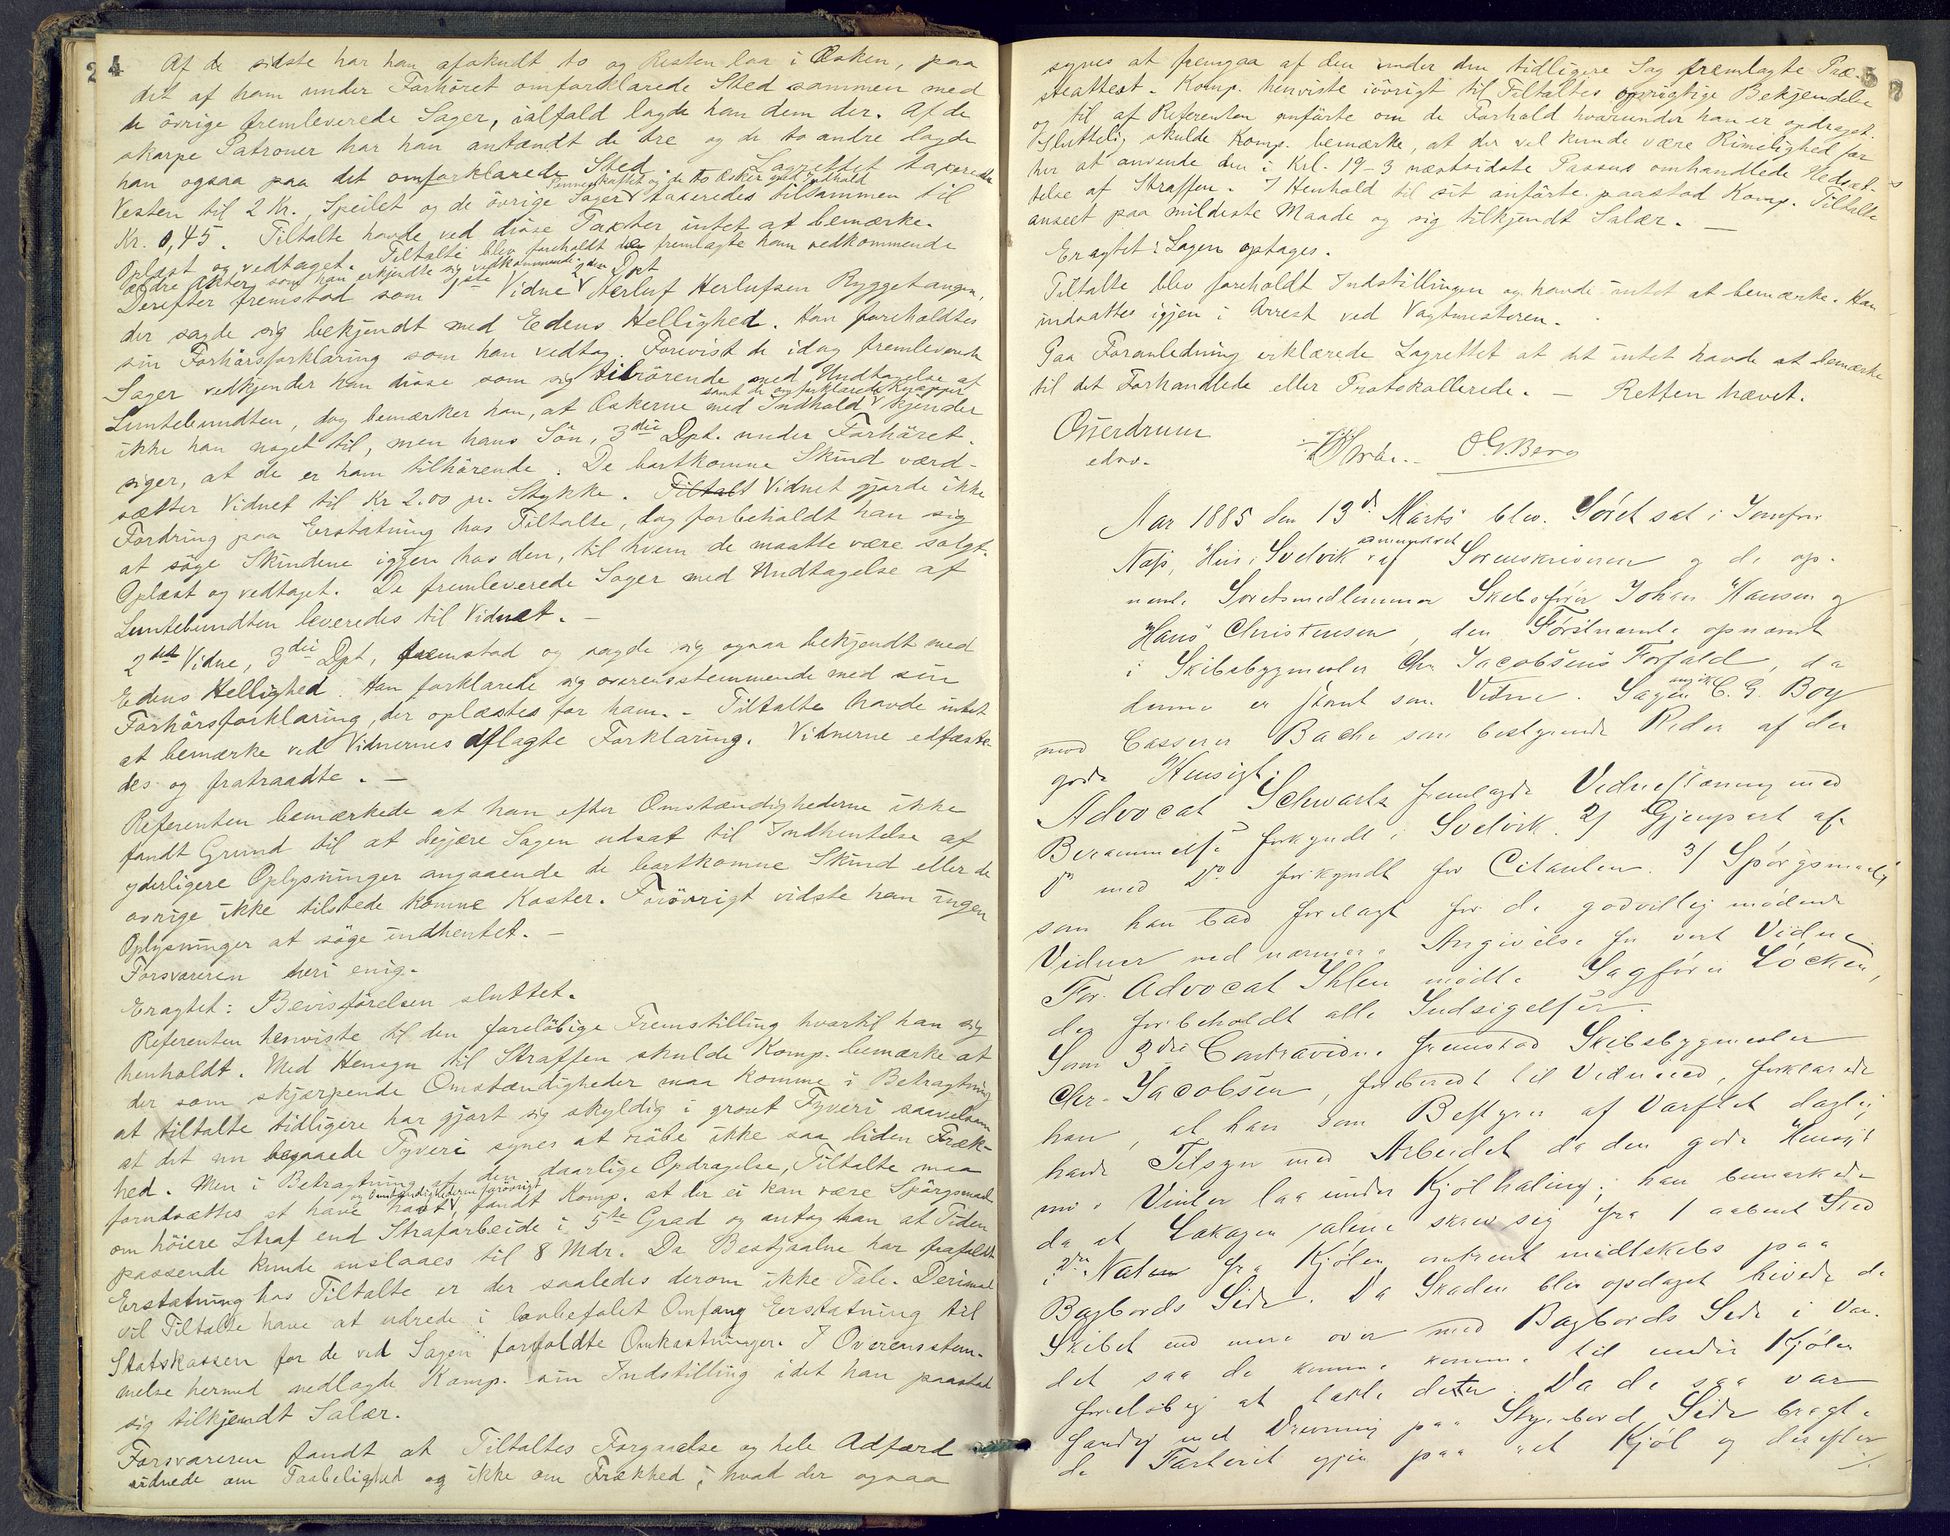 4
Af de sidste har han afskudt to og Resten laa i Æsken, paa
det af ham under Forhöret omforklarede Sted sammen med
de övrige fremleverede Sager, ialfald lagde han dem der. Af de
skarpe Patroner har han antændt de tre og de to andre lagde
han ogsaa paa det omforklarede Sted. Lagrettet taxerede
Vesten til 2 Kr., Speilet og de övrige Sager taxeredes tilsammen til
Kr. 0,45. Tiltalte havde ved disse Taxter intet at bemærke.
Oplæst og vedtaget. Tiltalte blev foreholdt de fremlagte ham vedkommende
ældre Akter som han erkjendte sig vedkommende.
Derefter fremstod som 1ste Vidne 2den Dpt Herluf Herlufsen Ryggetangen,
der sagde sig bekjendt med Edens Hellighed. Han foreholdtes
sin Forhörsforklaring som han vedtog. Forevist de idag fremleverede
Sager vedkjender han disse som sig tilhörende med Undtagelse af
Luntebundten, dog bemærker han, at Æskerne med Indhold samt de omforklarede Knapper kjender
ikke han noget til, men hans Sön, 3die Dpt. under Forhöret
siger, at de er ham tilhörende. De bortkomne Skind værd-
sætter Vidnet til Kr 2.00 pr. Stykke. Tiltalt Vidnet gjorde ikke
Fordring paa Erstatning hos Tiltalte, dog forbeholdt han sig
at söge Skindene igjen hos den, til hvem de maatte være solgt.
Oplæst og vedtaget. De fremleverede Sager med Undtagelse af
Luntebundten leveredes til Vidnet. –
2det Vidne, 3die Dpt, fremstod og sagde sig ogsaa bekjendt med
Edens Hellighed. Han forklarede sig overensstemmende med sin
Forhörsforklaring, der oplæstes for ham. – Tiltalte havde intet
at bemærke ved Vidnernes aflagte Forklaring. Vidnerne edfæste-
des og fratraadte. –
Referenten bemærkede at han efter Omstændighederne ikke
fandt Grund til at begjære Sagen udsat til Indhentelse af
yderligere Oplysninger angaaende de bortkomne Skind eller de
övrige ikke tilstede komne Koster. Forövrigt vidste han ingen
Oplysninger at söge indhentet. –
Forsvareren heri enig.
Eragtet: Bevisförelsen sluttet.
Referenten henviste til den forelöbige Fremstilling hvortil han sig
henholdt. Med Hensyn til Straffen skulde Komp. bemærke at
der som skjærpende Omstændigheder maa komme i Betragtning
at tiltalte tidligere har gjort sig skyldig i grovt Tyveri saavelsom
at det nu begaaede Tyveri synes at röbe ikke saa liden Fræk-
hed. Men i Betragtning af den daarlige Opdragelse, Tiltalte maa
forudsættes at have havt og Omstændighederne forövrigt, fandt Komp. at der ei kan være Spörgsmaal
om höiere Straf end Strafarbeide i 5te Grad og antog han at Tiden
passende kunde ansláaes til 8 Mdr. Da Bestjaalne har frafaldt
Erstatning hos Tiltalte er der saaledes derom ikke Tale. Derimod
vil Tiltalte have at udrede i lovbefalet Omfang Erstatning til
Statskassen for de ved Sagen forvoldte Omkostninger. I Overensstem-
melse hermed nedlagde Komp. sin Indstilling idet han paastod
sig tilkjendt Salær.
Forsvareren fandt at Tiltaltes Forgaaelse og hele Adfærd
vidnede om Taabelighed og ikke om Frækhed, hvad der ogsaa
5
synes at fremgaa af den under den tidligere Sag fremlagte Præ-
steattest. Komp. henviste iövrigt til Tiltaltes oprigtige Bekjendelse
og til af Referenten anförte om de Forhold hvorunder han er opdraget.
Sluttelig skulde Komp. bemærke, at der vel kunde være Rimelighed for
her at anvende den i Krl. 19–3 næstsidste Passus omhandlede Nedsæt-
telse af Straffen. I Henhold til sit anförte paastod Komp. Tiltalte
anseet paa mildeste Maade og sig tilkjendt Salær. –
Eragtet: Sagen optages.
Tiltalte blev foreholdt Indstillingen og havde intet at bemærke. Han
indsattes igjen i Arrest ved Vagtmesteren.
Paa Foranledning erklærede Lagrettet at det intet havde at bemærke
til det Forhandlede eller Protokollerede. – Retten hævet.
Offerdrum
edsv.
O. G. Berg
Aar 1885 den 13de Marts blev Søret sat i Jomfru
Næss Hus i Svelvik administreret af Sorenskriveren og de op-
nævnte Soretsmedlemmer Skibsfører Johan Hansen og
Hans Christensen, den Førstnævnte opnævnt
i Skibsbygmester Chr. Jacobsens Forfald, da
denne er stævnt som Vidne. Sagen angik C. G. Boy
mod Casserer Bache som bestyrende Reder af den
gode Hensigt.
Advocat Schwartz fremlagde Vidnestævning med
Berammelse forkyndt i Svelvik. 2/ Gjenpart af
Do med Do forkyndt for Citanten. 3/ Spørgsmaal
som han bad forelagt for de godvillig mødende
Vidner ved nærmere Angivelse for hvert Vidne.
For Advocat Ihlen mødte Sagfører Løcken,
der forbeholdt alle Indsigelser.
Som 3die Contravidne fremstod Skibsbygmester
Chr. Jacobsen, forberedt til Vidneed, forklarede
han, at han som Bestyrer af Værftet daglig
havde Tilsyn med Arbeidet da den gode Hensigt
nu i Vinter laa under Kjølhaling; han bemærkede
da at Lækagen alene skrev sig fra 1 aabent Sted
i 2den Naten fra Kjølen omtrent midtskibs paa
Bagbords Side. Da Skaden blev opdaget hivede de
Skibet end mere over med Bagbords Side i Van-
det saa de kunne komme til under Kjølen
foreløbig at tætte dette. Da de saa var
færdig med Drevning paa Styrbord Side bragte
de Fartøiet igjen paa ret Kjøl og derefter